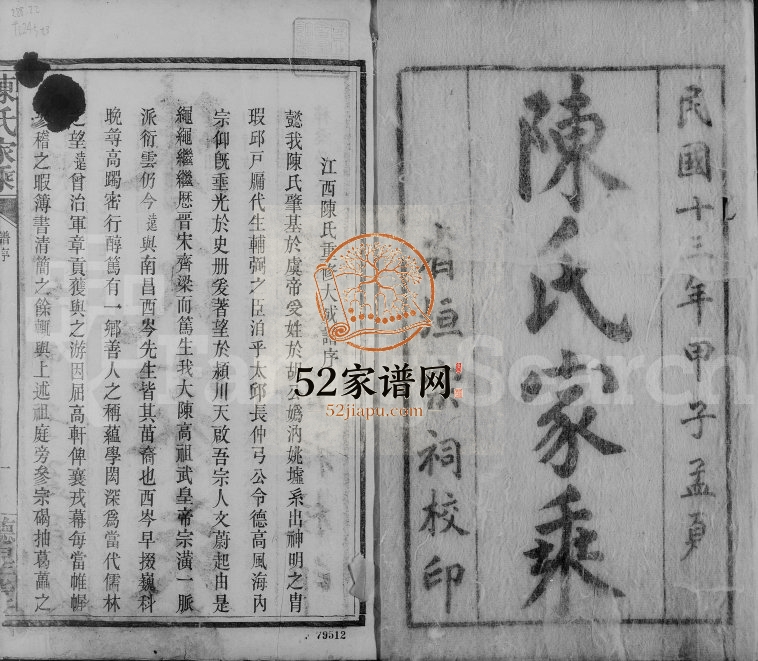 民國十三年甲子孟夏
陳氏家乘
省垣宗祠校印
江西陳氏重修大成譜序
懿我陳氏肇基於虞帝受姓於胡公嬀汭姚墟系出神明之胄
瑕邱戸牖代生輔弼之臣洎乎太邱長仲弓公令德高風海內
宗仰旣垂光於史册爰著望於潁川天啟吾宗人文蔚起由是
繩繩繼繼歷晋宋齊梁而篤生我大陳高祖武皇帝宗潢一脈
派衍雲仍今遠與南昌西岑先生皆其苗裔也西岑早掇巍科
晚尋高躅密行醇篤有一鄉善人之稱蘊學閎深爲當代儒林
之望遠曾治軍章貢獲與之游因屈高軒俾襄戎幕每當帷幄
稽之暇簿書清簡之餘輒與上述祖庭旁參宗碣抽葛藟之
陳氏家乘
譜序
一
52家谱网
52jiapu.com
FamilySearch
79512